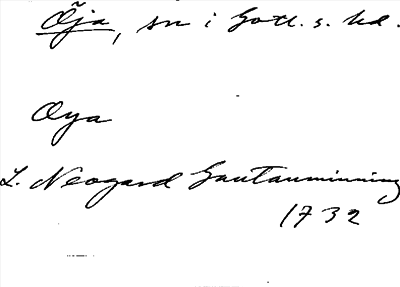 Öja, sn i Gotl. s. hd.
Oya
L. Neogard Gautauminning
1732